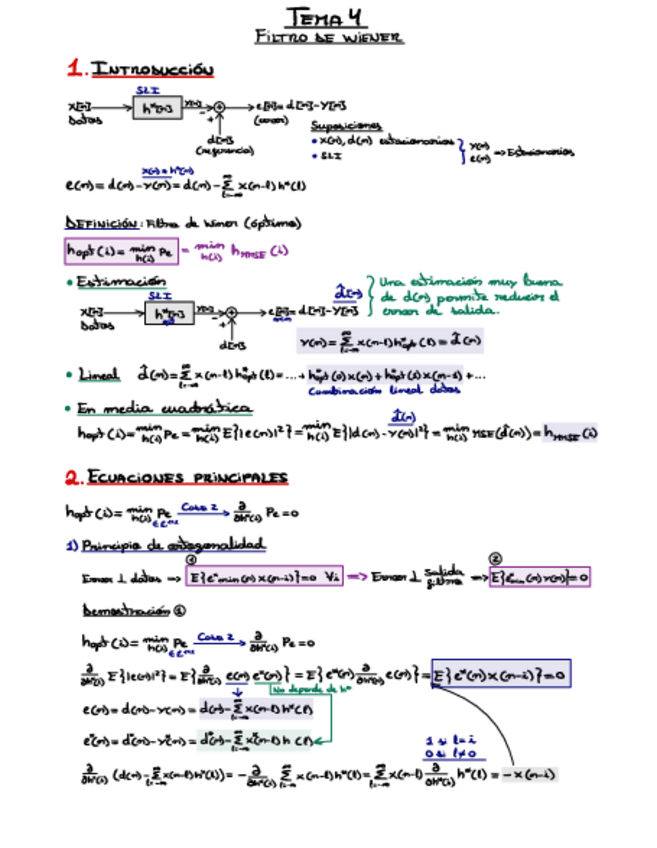 TEMA 4
FILTRO DE WIENER
1. INTRODUCCIÓN
SLI
x[n] Datos → h*[n] y[n] − + → e[n] = d[n] - y[n] (error)
d[n] (referencia)
Suposiciones
• x(n), d(n) estacionarios } y(n) e(n) => Estacionarios
• SLI
x(n) * h*(n)
e(n) = d(n) - y(n) = d(n) - Σ_{l=-∞}^{∞} x(n-l) h*(l)
DEFINICIÓN: Filtro de Wiener (óptimo)
hopt(i) = min_{h(i)} Pe = min_{h(i)} hMMSE(i)
• Estimación
SLI
x[n] Datos → h*[n] y[n] − + → e[n] = d[n] - y[n]
d̂[n]
d[n]
Una estimación muy buena
de d(n) permite reducir el
error de salida.
y(n) = Σ_{l=-∞}^{∞} x(n-l) h*opt(l) = d̂(n)
• Lineal d̂(n) = Σ_{l=-∞}^{∞} x(n-l) hopt*(l) = ... + hopt*(0) x(n) + hopt*(1) x(n-1) + ...
Combinación lineal datos
• En media cuadrática
d̂(n)
hopt(i) = min_{h(i)} Pe = min_{h(i)} E{|e(n)|²} = min_{h(i)} E{|d(n) - y(n)|²} = min_{h(i)} MSE(d̂(n)) = hMMSE(i)
2. ECUACIONES PRINCIPALES
hopt(i) = min_{h(i)} Pe Caso 2 → ∂/∂h*(i) Pe = 0
1) Principio de ortogonalidad
① ②
Error ⊥ datos => E{e*min(n) x(n-i)} = 0 ∀i => Error ⊥ salida filtro => E{e*min(n) y(n)} = 0
Demostración ①
hopt(i) = min_{h(i)} Pe Caso 2 → ∂/∂h*(i) Pe = 0
∂/∂h*(i) E{|e(n)|²} = E{∂/∂h*(i) e(n) e*(n)} = E{e*(n) ∂/∂h*(i) e(n)} = E{e*(n) x(n-i)} = 0
No depende de h*
e(n) = d(n) - y(n) = d(n) - Σ_{l=-∞}^{∞} x(n-l) h*(l)
e*(n) = d*(n) - y*(n) = d*(n) - Σ_{l=-∞}^{∞} x*(n-l) h(l)
1 si l = i
0 si l ≠ 0
∂/∂h*(i) (d(n) - Σ_{l=-∞}^{∞} x(n-l) h*(l)) = - ∂/∂h*(i) Σ_{l=-∞}^{∞} x(n-l) h*(l) = Σ_{l=-∞}^{∞} x(n-l) ∂/∂h*(i) h*(l) = - x(n-i)